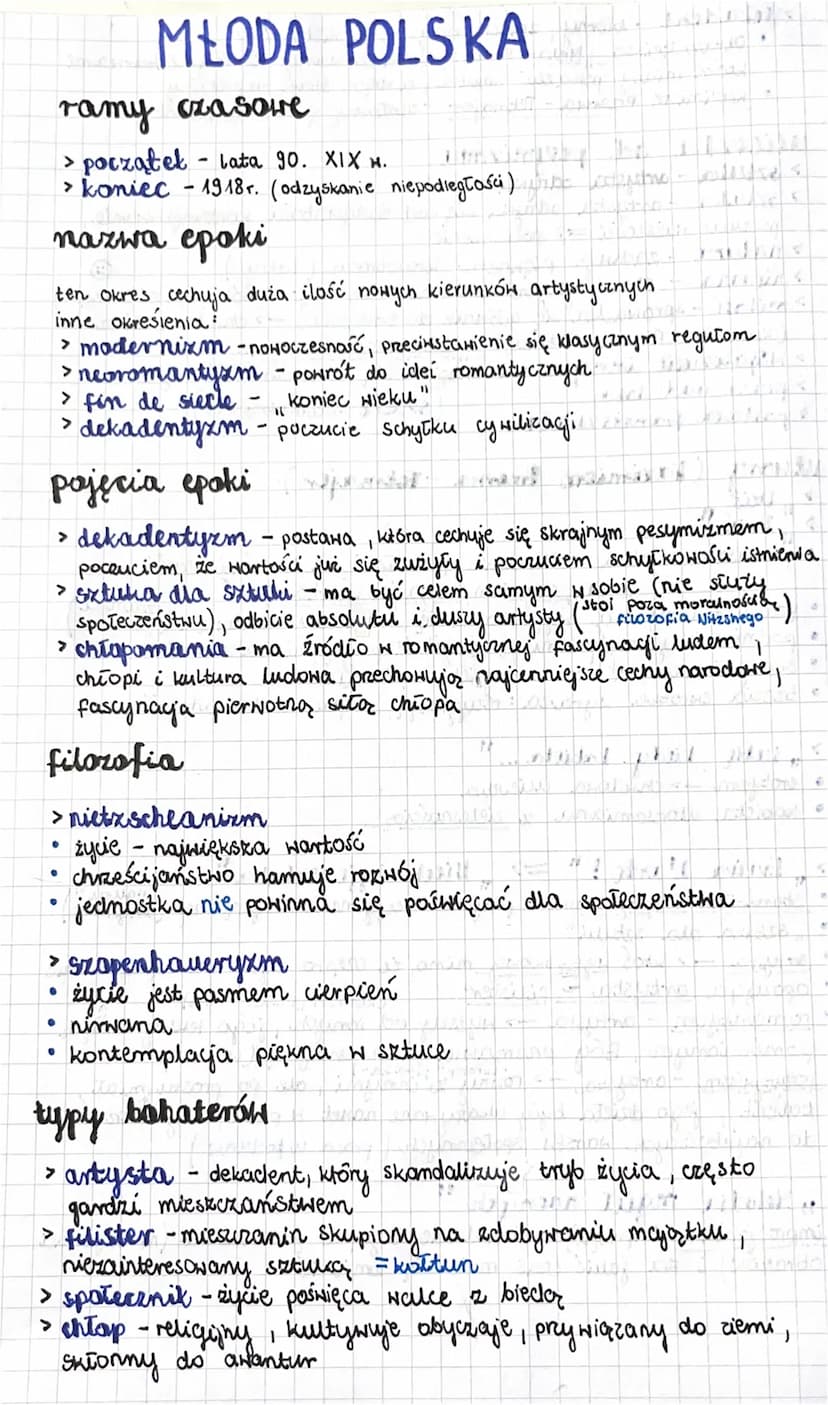 MŁODA POLSKA
ramy czasowe
> początek - lata 90. XIX w.
> koniec - 1918r. (odzyskanie niepodległości)
nazwa epoki
ten okres cechują duża ilość nowych kierunków artystycznych
inne określenia:
> modernizm - nowoczesność, przeciwstawienie się klasycznym regułom
> neoromantyzm - powrót do idei romantycznych
> fin de siecle - „koniec wieku"
> dekadentyzm - poczucie schyłku cywilizacji
pojęcia epoki
> dekadentyzm - postawa, która cechuje się skrajnym pesymizmem,
poczuciem, że wartości już się zużyły i poczuciem schyłkowości istnienia
> sztuka dla sztuki - ma być celem samym w sobie (nie służy
społeczeństwu), odbicie absolutu i duszy artysty (stoi poza moralnością)
filozofia Nitzshego
> chłopomania - ma źródło w romantycznej fascynacji ludem,
chłopi i kultura ludowa przechowują najcenniejsze cechy narodowe,
fascynacja pierwotną siłą chłopa
filozofia
> nietzscheanizm
• życie - największa wartość
• chrześcijaństwo hamuje rozwój
• jednostka nie powinna się poświęcać dla społeczeństwa
> szopenhaueryzm
• życie jest pasmem cierpień
• nirwana
• kontemplacja piękna w sztuce
typy bohaterów
> artysta - dekadent, który skandalizuje tryb życia, często
gardzi mieszczaństwem
> filister - mieszczanin skupiony na zdobywaniu majątku,
niezainteresowany sztuką = kołtun
> społecznik - życie poświęca walce z biedą
> chłop - religijny, kultywuje obyczaje, przywiązany do ziemi,
skłonny do awantur